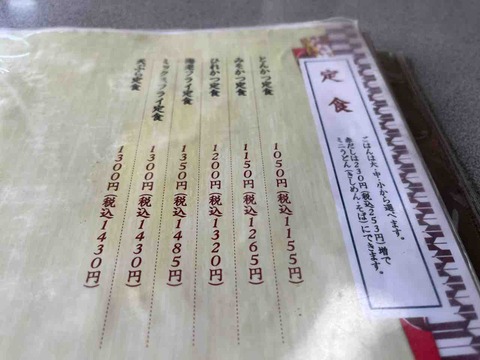 定食
ごはんは大・中・小から選べます。
赤だしは230円(税込253円)増で
ミニうどん(きしめん・そば)にできます。
とんかつ定食 1050円(税込1155円)
みそかつ定食 1150円(税込1265円)
ひれかつ定食 1200円(税込1320円)
海老フライ定食 1350円(税込1485円)
ミックスフライ定食 1300円(税込1430円)
天ぷら定食 1300円(税込1430円)